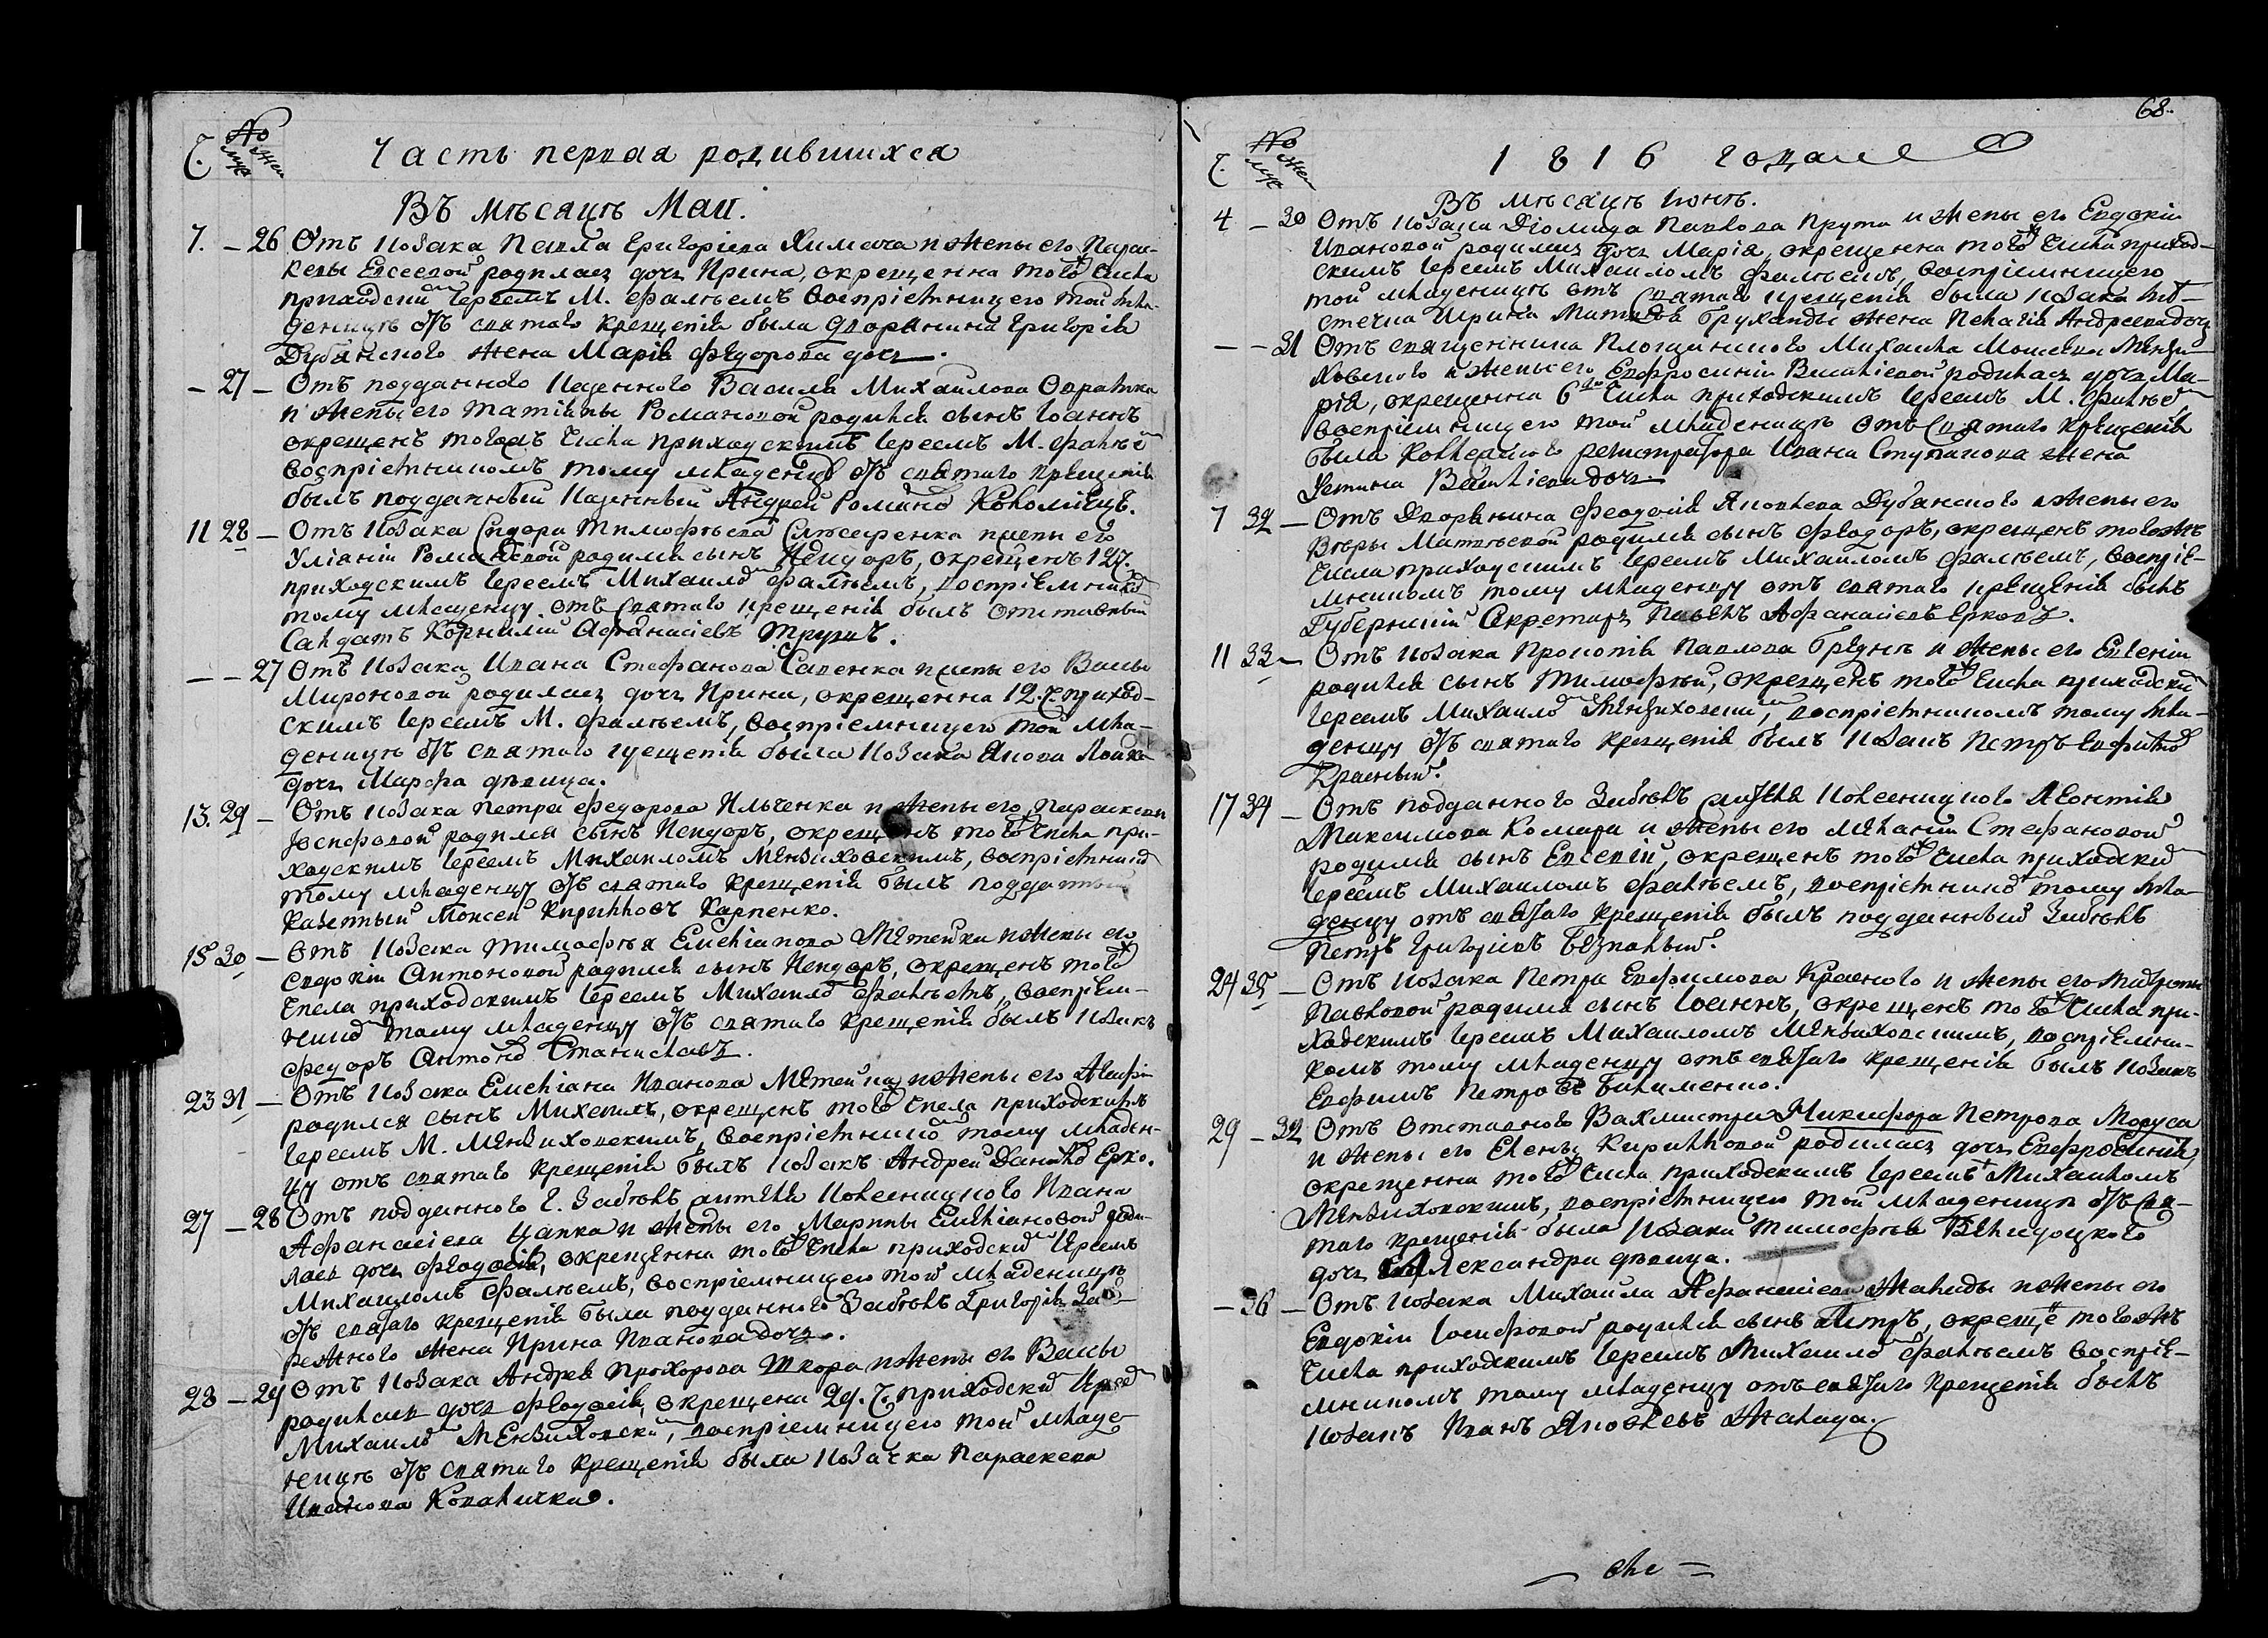 Ч. № муж жен Часть первая родившихся
Въ мѣсяцѣ Маи.
7. – 26 Отъ козака Павла Григоріева Химача и жены его Парас-
кевы Евсеевой родилась дочь Ирина, окрещенна тогож числа
приходскимъ Іереемъ М. Фалѣемъ воспріемницею той мла-
деницѣ отъ святаго крещенія была дворянина Григорія
Дубянского жена Марія Федорова дочь.
– 27 – Отъ подданного казенного Василія Михайлова
и жены его Татіяны Романовой родился сынъ Іоаннъ
окрещенъ тогожъ числа приходскимъ Іереемъ М. Фалѣем
воспріемникомъ тому младенцу отъ святаго крещенія
былъ подданный казенный Андрей Романов Коломіецъ.
11 28 – Отъ козака Сидора Тимофѣева и жены его
Уліаніи Романовой родился сынъ Исидоръ, окрещенъ 12 ч.
приходскимъ Іереемъ Михаиломъ Фалѣемъ, воспріемником
тому младенцу отъ святаго крещенія былъ отставный
Салдатъ Корнилій Афанасіевъ
– – 27 Отъ козака Ивана Стефанова Савенка и жены его Вассы
Мироновой родилась дочь Ирина, окрещенна 12. ч. приход-
скимъ Іереемъ М. Фалѣемъ, воспріемницею той мла-
деницѣ отъ святаго крещенія была козака Якова
дочь Марфа дѣвица.
13. 29 – Отъ козака Петра Федорова Ильченка и жены его Параскевы
Іосифовой родился сынъ Исидоръ, окрещенъ тогож числа при-
ходскимъ Іереемъ Михаиломъ Мензиховскимъ, воспріемником
тому младенцу отъ святаго крещенія былъ подданный
казенный Моисей Кирилловъ Карпенко.
15 30 – Отъ козака Тимофѣя Емеліанова Метейка и жены его
Евдокіи Антоновой родился сынъ Исидоръ, окрещенъ тогож
числа приходскимъ Іереемъ Михаилом Фалѣемъ, воспріем-
ником тому младенцу отъ святаго крещенія былъ козакъ
Федоръ Антонов Станиславъ.
23 31 – Отъ козака Емеліана Иванова Метейка и жены его Агафіи
родился сынъ Михаилъ, окрещенъ тогож числа приходскимъ
Іереемъ М. Мензиховскимъ, воспріемником тому младен-
цу отъ святаго крещенія былъ козакъ Андрей Данилов Ерко.
27 – 28 Отъ подданного Г. Забѣлъ Ивана
Афанасіева Цапка и жены его Марины Емеліановой роди-
лась дочь Феодосія, окрещенна тогож числа приходским Іереемъ
Михаиломъ Фалѣемъ, воспріемницею той младеницѣ
отъ святаго крещенія была подданного Забѣлъ Григорія За-
режного жена Ирина Иванова дочь.
28 – 29 Отъ козака Андрея Прохорова Шкора и жены его Вассы
родилась дочь Феодосія, окрещена 29. ч. приходским Іереем
Михаилом Мензиховским, воспріемницею той младе-
ницѣ отъ святаго крещенія была козачка Параскева
Иванова Ковалички.
68.
Ч. № муж жен 1816 года
Въ мѣсяцѣ Іюнѣ.
4 – 30 Отъ козака Діомида Павлова Прута и жены его Евдокіи
Ивановой родилась дочь Марія, окрещенна тогож числа приход-
скимъ Іереемъ Михаиломъ Фалѣемъ, воспріемницею
той младеницѣ отъ святаго крещенія была козака
Бруханды жена Пелагія Андреева дочь
– – 31 Отъ священника Михаила Моисеева Мензи-
ховского и жены его Евфросиніи Василіевой родилась дочь Ма-
рія, окрещенна 6го числа приходскимъ Іереемъ М. Фалѣем
воспріемницею той младеницѣ отъ святаго крещенія
была Коллежского регистратора Ивана Ступакова жена
Устина Василіева дочь.
7 32 – Отъ Дворянина Феодосія Яковлева Дубянского и жены его
Вѣры Матвѣевой родился сынъ Феодоръ, окрещенъ тогожъ
числа приходскимъ Іереемъ Михаиломъ Фалѣемъ, воспріе-
мникомъ тому младенцу отъ святаго крещенія былъ
Губернскій Секретарь Павелъ Афанасіевъ Ерковъ.
11 33 – Отъ козака Прокопія Павлова и жены его Евгеніи
родился сынъ Тимофѣй, окрещенъ тогож числа приходским
Іереемъ Михаилом Мензиховским, воспріемникомъ тому мла-
денцу отъ святаго крещенія былъ козакъ Петръ Евфимов
Красный.
17 34 – Отъ подданного Забѣлъ Леонтія
Максимова Комара и жены его Меланіи Стефановой
родился сынъ Евсевій, окрещенъ тогож числа приходским
Іереемъ Михаиломъ Фалѣемъ, воспріемником тому мла-
денцу отъ святаго крещенія былъ подданный Забѣлъ
Петръ Григоріевъ Безпалый.
24 35 – Отъ козака Петра Евфимова Красного и жены его
Павловой родился сынъ Іоаннъ, окрещенъ тогож числа при-
ходскимъ Іереемъ Михаиломъ Мензиховскимъ, воспріемни-
комъ тому младенцу отъ святаго крещенія былъ козакъ
Евфимъ Петровъ
29 – 32 Отъ отставного Вахмистра Никифора Петрова Моруса
и жены его Елены Кирилловой родилась дочь Евфросинія,
окрещенна тогож числа приходскимъ Іереемъ Михаиломъ
Мензиховскимъ, воспріемницею той младеницѣ отъ свя-
таго крещенія была козака Тимофѣя
дочь Александра дѣвица.
– 36 – Отъ козака Михаила Афанасіева Жалиды и жены его
Евдокіи Іосифовой родился сынъ Петръ, окрещен тогожъ
числа приходскимъ Іереемъ Михаилом Фалѣемъ воспріе-
мникомъ тому младенцу отъ святаго крещенія былъ
козакъ Иванъ Яковлевъ